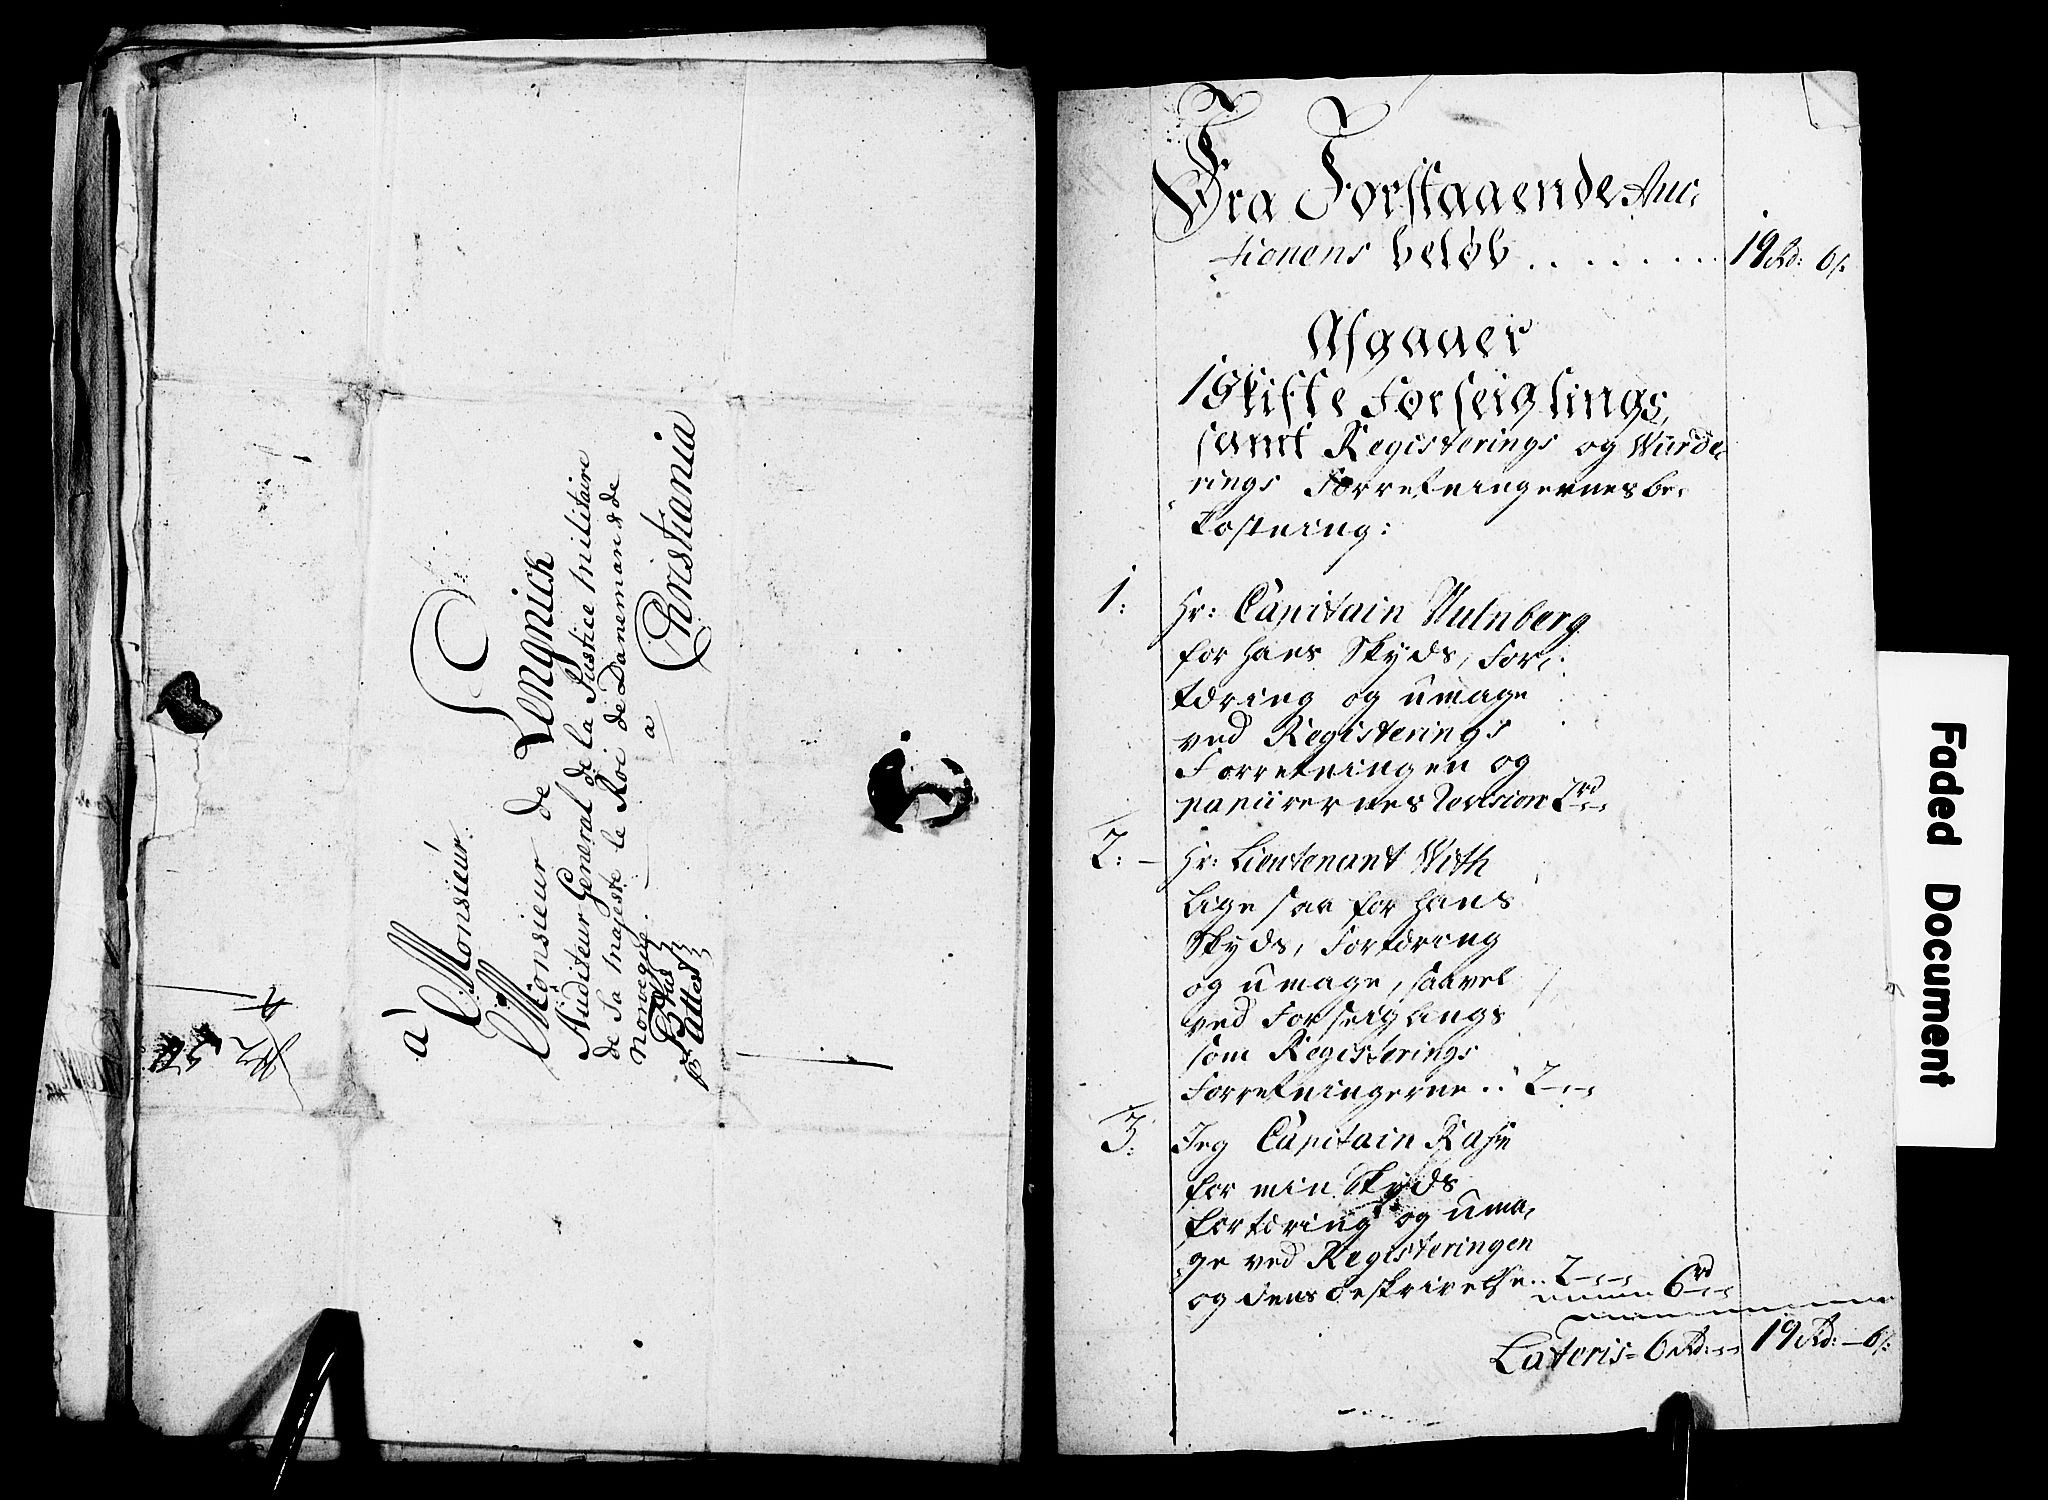 à Monsieur.
Monsieur de Lengnick
Auditeur General de la Justice militaire
de Sa majesté le Roi de Danemarc & de
Norvegue.
a
Christania
Fra Forstaaende Auc,
tionens beløb . . . . . . . 19 Rd: 6 s:
Afgaaer
1 Skifte Forseiglings,
samt Registerings og Wurde,
rings Forretningernes be,
kostning:
1: Hr: Capitain Hulnberg
for hans Skyds, For,
tæring og umage
ved Registerings
Forretningen og
papiirernes Revision 2 rd
2: Hr: Lieutenant With
lige saa for hans
Skyds, Fortæring
og umage, saavel
ved Forseiglings
som Registerings
Forretningerne .. 2
3: Jeg Capitain Rasch
for min Skyds
fortæring og uma,
ge ved Registeringen
og dens beskrivelse .. 2 6 rd
Lateris - 6 Rd: 19 Rd: - 6 s:
Faded Document